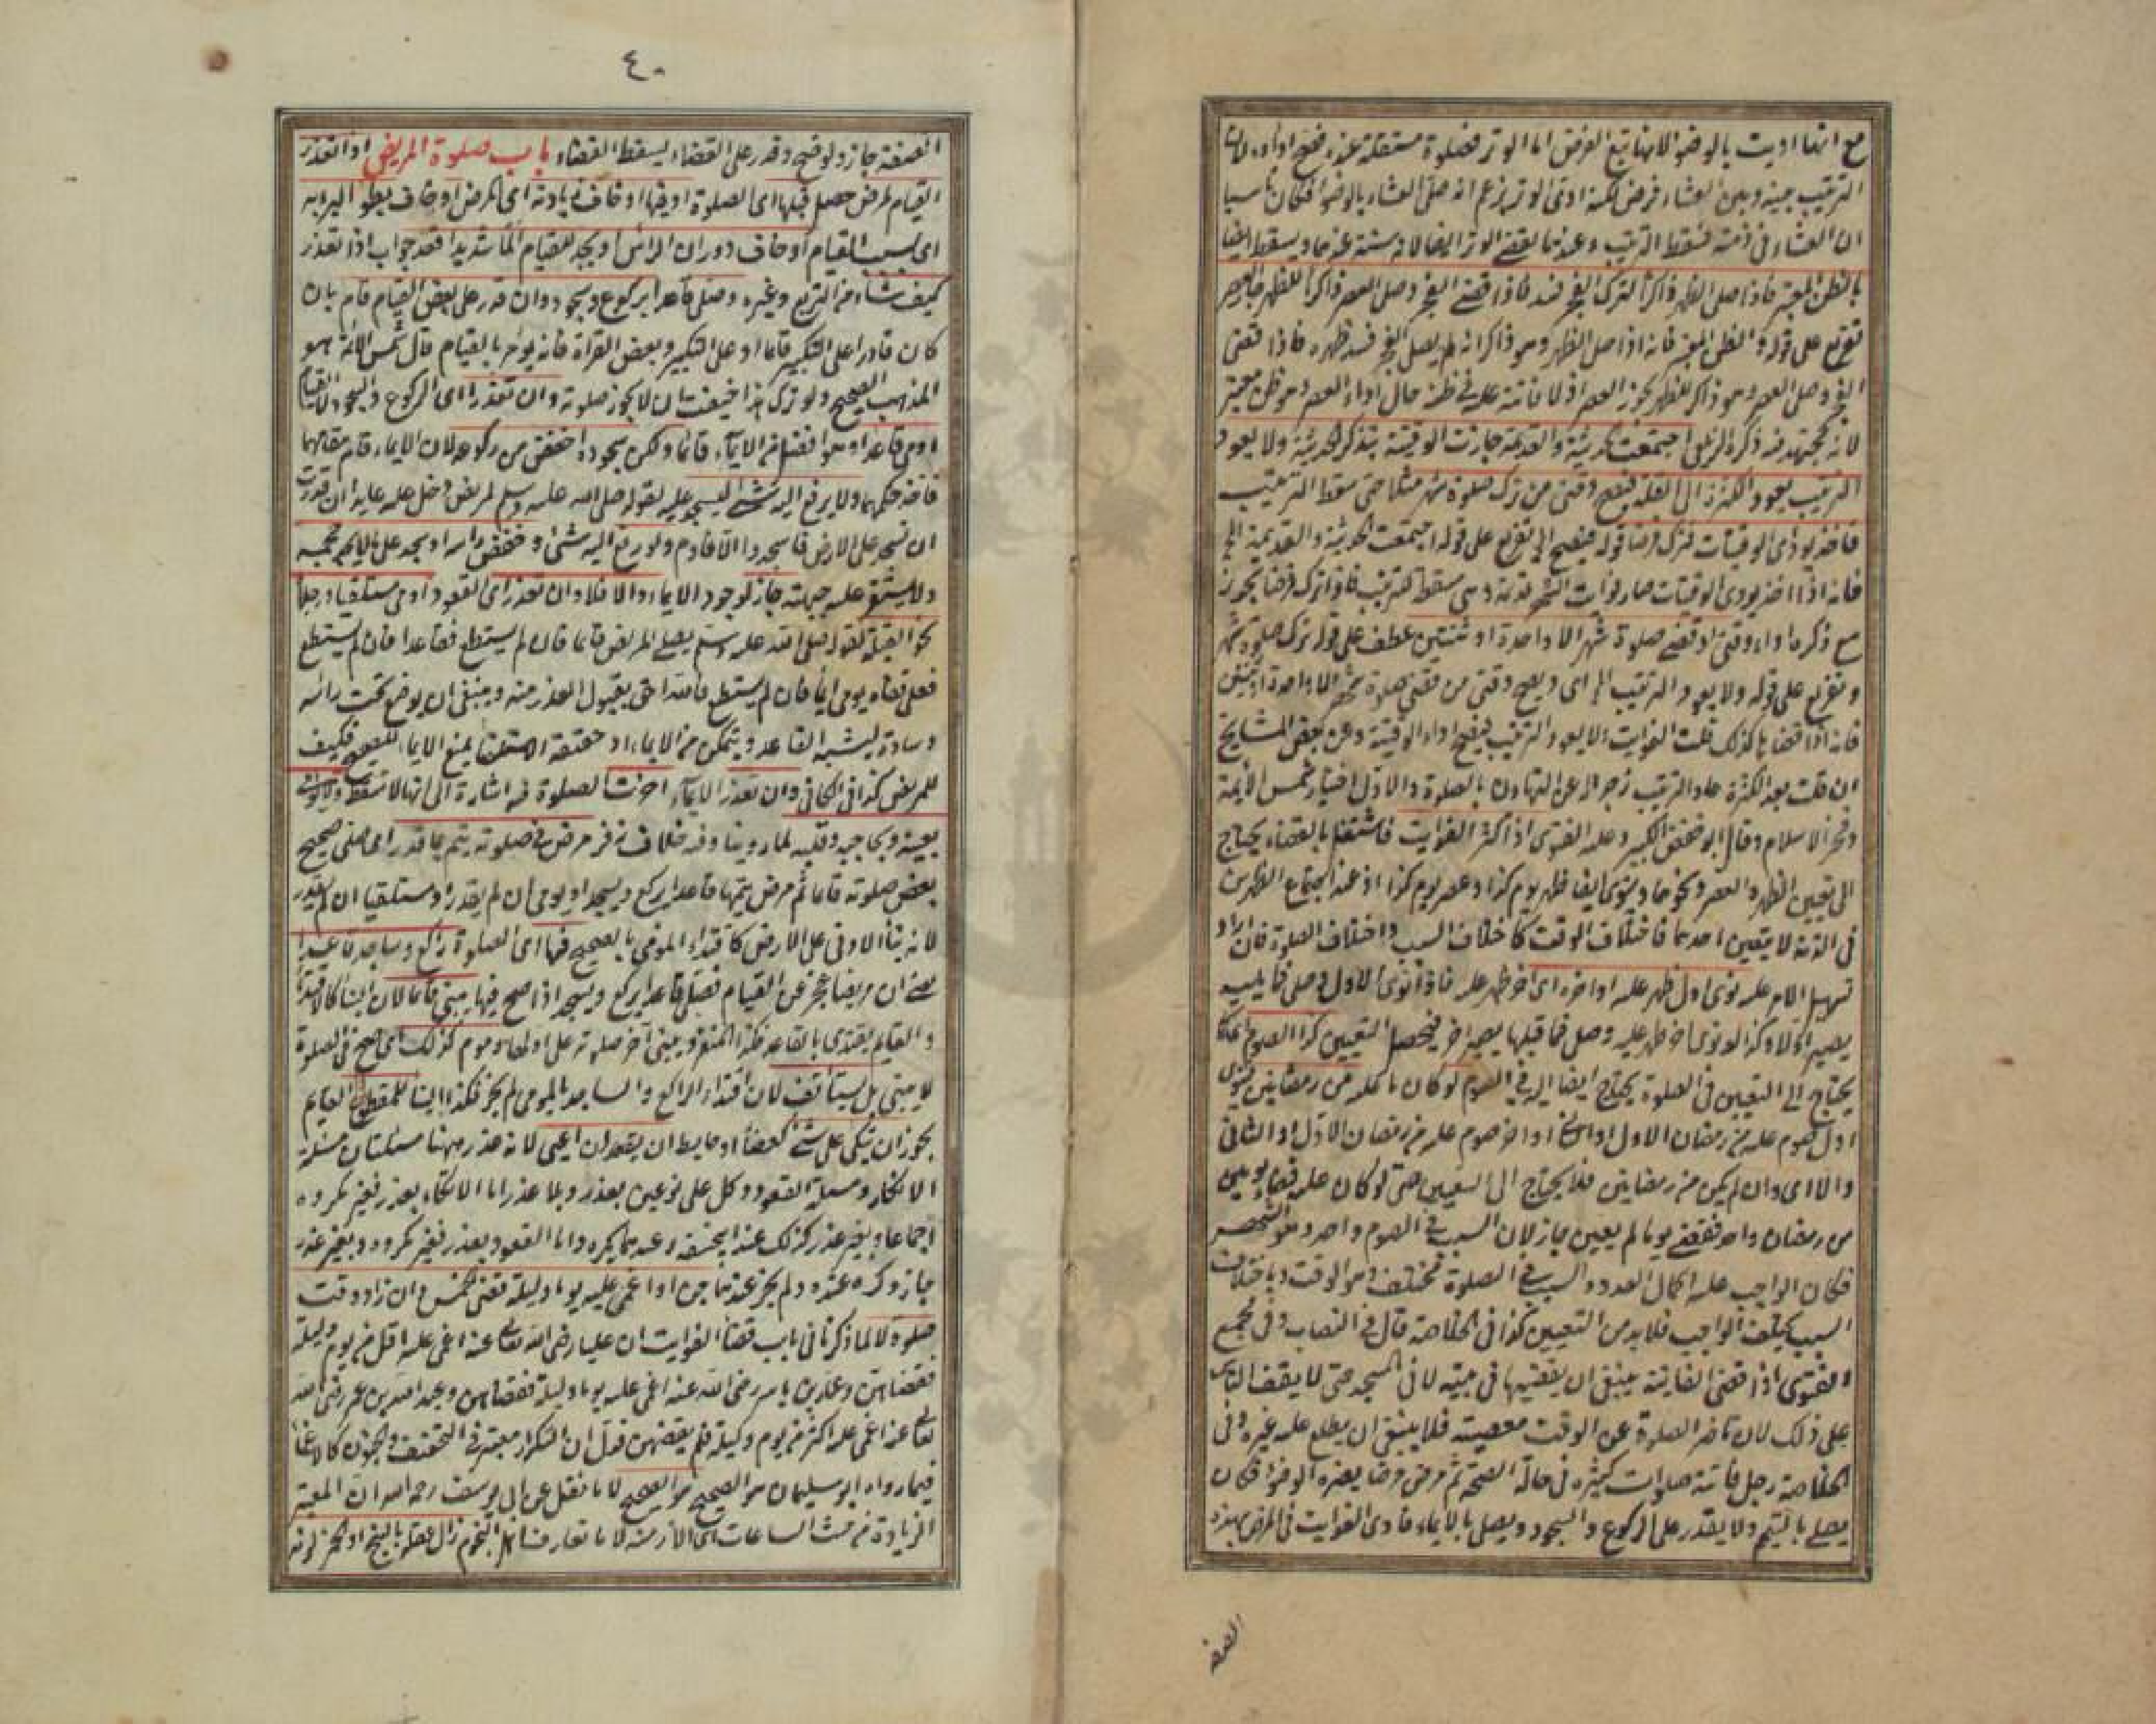 مع انها اديت بالوضوء لانها تبع للفرض اما الوتر فصلوة مستقلة عنده فصح اداؤه لان
الترتيب بينه وبين العشاء فرض لكنه ادى الوتر بزعم انه صلى العشاء بالوضوء فكان ناسيا
ان العشاء في ذمته فسقط الترتيب وعندهما يقضي الوتر ايضا لانه سنة عندهما ويسقط ايضا
بالظن المعتبر فاذا صلى الظهر ذاكرا لترك الفجر فسد فاذا قضى الفجر وصلى العصر ذاكرا للظهر جاز العصر
تفريع على قوله والظن المعتبر فانه اذا صلى الظهر وهو ذاكر انه لم يصل الفجر فسد ظهره فاذا قضى
الفجر وصلى العصر وهو ذاكر للظهر يجوز العصر اذ لا فائتة عليه في ظنه حال اداء العصر وهو ظن معتبر
لانه مجتهد فيه ذكره الزيلعي اجتمعت الحديثة والقديمة جازت الوقتية بتذكر الحديثة ولا يعود
الترتيب بعود الكثرة الى القلة فيصح وقتي من ترك صلوة شهر مثلا حتى سقط الترتيب
فاخذ يؤدي الوقتيات فترك فرضا قوله فيصح الى تفريع على قوله اجتمعت الحديثة والقديمة الى
فانه اذا اخذ يؤدي الوقتيات صار فوائت الشهر قديمة وهي مسقطة للترتيب فاذا ترك فرضا يجوز
مع ذكره اداء وقتي او قضى صلوة شهر الا واحدة او ثنتين عطف على قوله ترك صلوة شهر
وتفريع على قوله ولا يعود الترتيب الى اي ويصح وقتي من قضى صلوة شهر الا واحدة او ثنتين
فانه اذا قضاها كذلك قلت الفوايت ولا يعود الترتيب فيصح اداء الوقتية وعن بعض المشايخ
ان قلت بعد الكثرة عاد الترتيب زجرا له عن التهاون بالصلوة والاول اختيار شمس الائمة
وفخر الاسلام وقال ابو حفص الكبير وعليه الفتوى اذا كثر الفوايت فاشتغل بالقضاء يحتاج
الى تعيين الظهر والعصر ونحوهما وينوي ايضا ظهر يوم كذا وعصر يوم كذا اذ عند اجتماع الظهرين
في الذمة لا يتعين احدهما فاختلاف الوقت كاختلاف السبب واختلاف الصلوة فان اراد
تسهيل الامر عليه نوى اول ظهر عليه او اخره اي اخر ظهر عليه فاذا نوى الاول وصلى فما يليه
يصير اولا وكذا لو نوى اخر ظهر عليه وصلى فما قبلها يصير اخر فيحصل التعيين كذا الصوم اي كما
يحتاج الى التعيين في الصلوة يحتاج ايضا اليه في الصوم لو كان ما عليه من رمضانين فينوي
اول صوم عليه من رمضان الاول او الثاني او اخر صوم عليه من رمضان الاول او الثاني
والا اي وان لم يكن من رمضانين فلا يحتاج الى التعيين حتى لو كان عليه قضاء يومين
من رمضان واحد فقضى يوما لم يعين جاز لان السبب في الصوم واحد وهو الشهر
فكان الواجب عليه اكمال العدد والسبب في الصلوة مختلف وهو الوقت وباختلاف
السبب يختلف الواجب فلا بد من التعيين كذا في الخلاصة قال في النصاب وفي مجمع
الفتوى اذا قضى الفايتة ينبغي ان يقضيها في بيته لا في المسجد حتى لا يقف الناس
على ذلك لان تاخير الصلوة عن الوقت معصية فلا ينبغي ان يطلع عليه غيره وفي
الخلاصة رجل فاتته صلوات كثيرة في حالة الصحة ثم مرض مرضا يضره الوضوء فكان
يصلي بالتيمم ولا يقدر على الركوع والسجود ويصلي بالايماء فادى الفوايت في المرض بهذه
الصفة
٤٠
الصفة جاز ولو صح وقدر على القضاء ليسقط القضاء باب صلوة المريض اذا تعذر
القيام لمرض حصل قبلها اي الصلوة او فيها او خاف زيادته اي المرض او خاف بطؤ البرء به
اي بسبب القيام او خاف دوران الراس او يجد للقيام الما شديدا قعد جواب اذا تعذر
كيف شاء من التربع وغيره وصلى قاعدا بركوع وسجود وان قدر على بعض القيام قام بان
كان قادرا على التكبير قائما او على التكبير وبعض القراة فانه يؤمر بالقيام قال شمس الائمة هو
المذهب الصحيح ولو ترك هذا خيف ان لا يجوز صلوته وان تعذرا اي الركوع والسجود لا القيام
اومى قاعدا وهو افضل من الايماء قائما ولكن سجوده اخفض من ركوعه لان الايماء قام مقامهما
فاخذ حكمهما ولا يرفع اليه شئ ليسجد عليه لقوله صلى الله عليه وسلم لمريض دخل عليه عايدا ان قدرت
ان تسجد على الارض فاسجد والا فاوم ولو رفع اليه شئ وخفض راسه او سجد على ما لا يجد حجمه
ولا يستقر عليه جبهته جاز لوجود الايماء والا فلا وان تعذر اي القعود اومى مستلقيا ورجلاه
نحو القبلة لقوله صلى الله عليه وسلم يصلي المريض قائما فان لم يستطع فقاعدا فان لم يستطع
فعلى قفاه يومي ايماء فان لم يستطع فالله احق بقبول العذر منه وينبغي ان يوضع تحت راسه
وسادة ليشبه القاعد ويتمكن من الايماء اذ حقيقة الاستلقاء يمنع الايماء للصحيح فكيف
للمريض كذا في الكافي وان تعذر الايماء اخرت الصلوة فيه اشارة الى انها لا تسقط ولا يومي
بعينه وبحاجبه وقلبه لما روينا وفيه خلاف زفر مرض في صلوته يتم بما قدر اي صلى صحيح
بعض صلوته قائما ثم مرض يتمها قاعدا يركع ويسجد او يومي ان لم يقدر او مستلقيا ان لم يقدر
لانه بناء الادنى على الاعلى كاقتداء المومي بالصحيح صح فيها اي الصلوة راكع وساجد قاعدا
يعني ان مريضا عجز عن القيام فصلى قاعدا يركع ويسجد اذا صح فيها يبني قائما لان البناء كالاقتداء
والقايم يقتدي بالقاعد فكذا المنفرد يبني آخر صلوته على اولها ومومٍ كذلك اي صح في الصلوة
لا يبني بل يستانف لان اقتداء الراكع والساجد بالمومي لم يجز فكذا البناء للمتطوع القايم
يجوز ان يتكي على شئ كعصا او حايط ان يقعد ان اعيى لانه عذر وههنا مسئلتان مسئلة
الاتكاء ومسئلة القعود وكل على نوعين بعذر وبلا عذر اما الاتكاء بعذر فغير مكروه
اجماعا وبغير عذر كذلك عند ابي حنيفة وعندهما يكره واما القعود بعذر فغير مكروه وبغير عذر
جاز وكره عنده ولم يجز عندهما جن او اغمي عليه يوما وليلة قضى الخمس وان زاد وقت
صلوة لا لما ذكرنا في باب قضاء الفوايت ان عليا رضي الله تعالى عنه اغمي عليه اقل من يوم وليلة
فقضاهن وعمار بن ياسر رضي الله عنه اغمي عليه يوما وليلة فقضاهن وعبد الله بن عمر رضي الله
تعالى عنه اغمي عليه اكثر من يوم وليلة فلم يقضهن فدل ان التكرار معتبر في التخفيف والجنون كالاغماء
فيما رواه ابو سليمان هو الصحيح هو الصحيح لا ما نقل عن ابي يوسف رحمه الله ان المعتبر
الزيادة من حيث الساعات اي الازمنة لا ما تعارفه اهل النجوم زال عقله بالبنج او الخمر لزمه